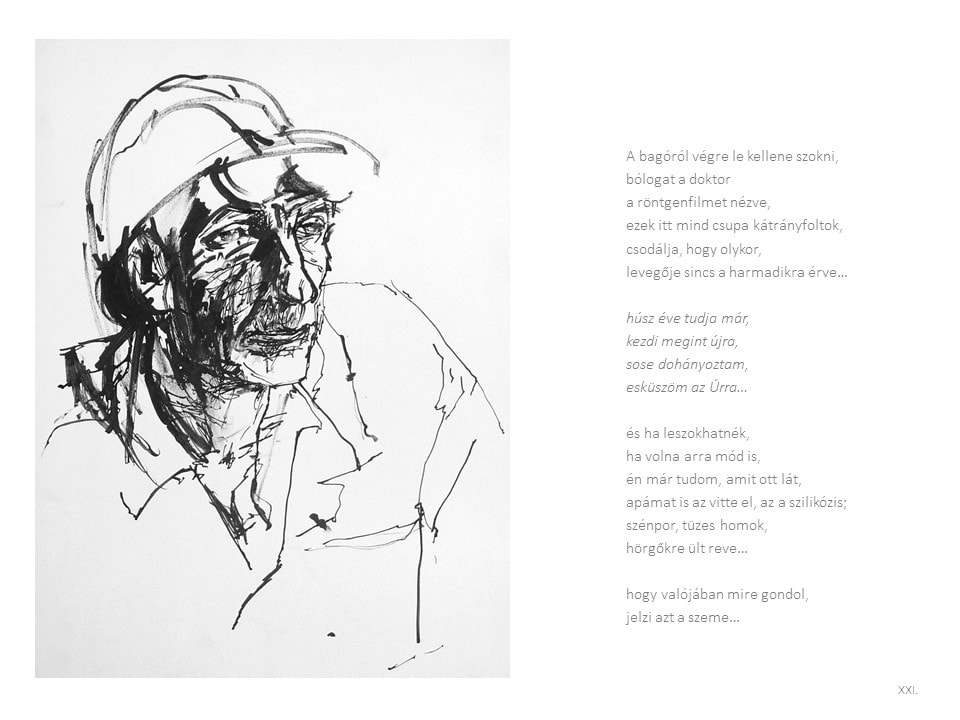 A bagóról végre le kellene szokni,
bólogat a doktor
a röntgenfilmet nézve,
ezek itt mind csupa kátrányfoltok,
csodálja, hogy olykor,
levegője sincs a harmadikra érve…
húsz éve tudja már,
kezdi megint újra,
sose dohányoztam,
esküszöm az Úrra…
és ha leszokhatnék,
ha volna arra mód is,
én már tudom, amit ott lát,
apámat is az vitte el, az a szilikózis;
szénpor, tüzes homok,
hörgőkre ült reve…
hogy valójában mire gondol,
jelzi azt a szeme…
XXI.